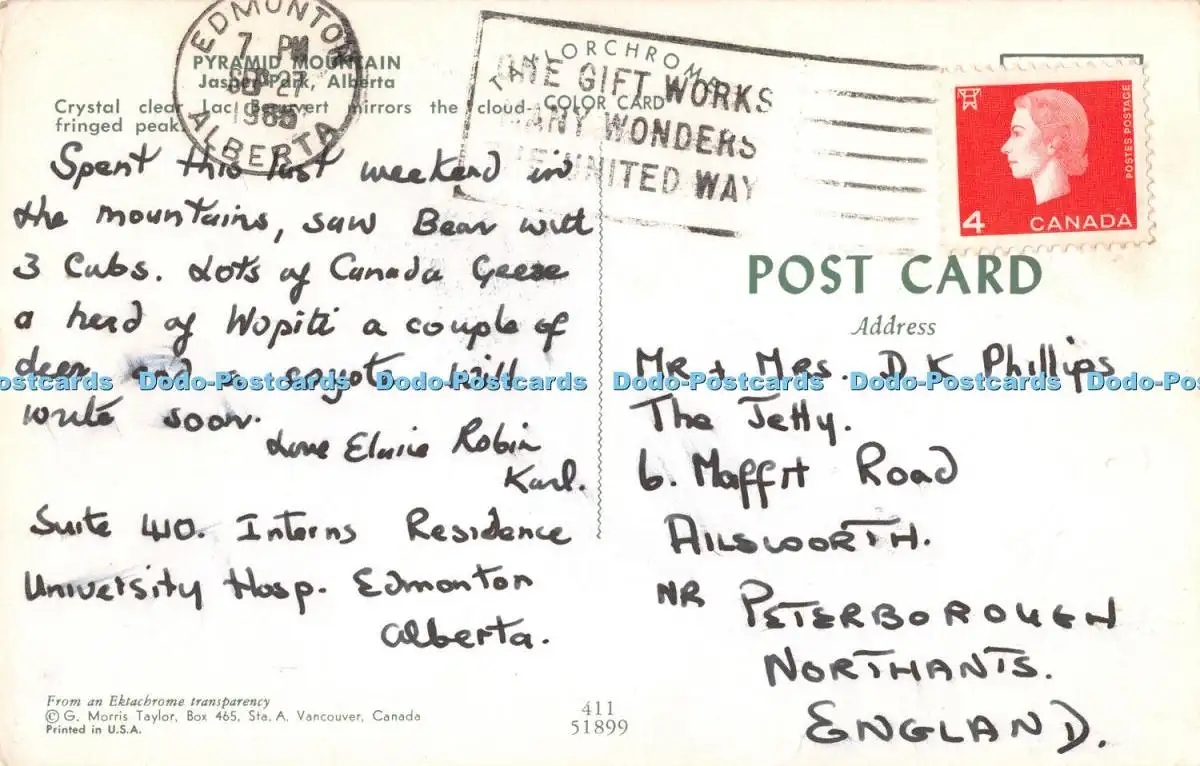 EDMONTON
7 PM
27
ALBERTA
PYRAMID MOUNTAIN
Jasper Park, Alberta
Crystal clear Lac Beauvert mirrors the cloud-
fringed peak.
TAYLORCHROME
COLOR CARD
ONE GIFT WORKS
MANY WONDERS
THE UNITED WAY
POSTES POSTAGE
4 CANADA
Spent this last weekend in
the mountains, saw Bear with
3 Cubs. Lots of Canada Geese
a herd of Wopiti a couple of
deer and a coyote will
write soon.
Love Elaine Robin
Karl.
Suite 410. Interns Residence
University Hosp. Edmonton
Alberta.
POST CARD
Address
MR + MRS. D K Phillips
The Jetty.
6. Maffit Road
AILSWORTH.
NR PETERBOROUGH
NORTHANTS.
ENGLAND.
Dodo-Postcards Dodo-Postcards Dodo-Postcards Dodo-Postcards Dodo-Postcards
From an Ektachrome transparency
© G. Morris Taylor, Box 465, Sta. A. Vancouver, Canada
Printed in U.S.A.
411
51899